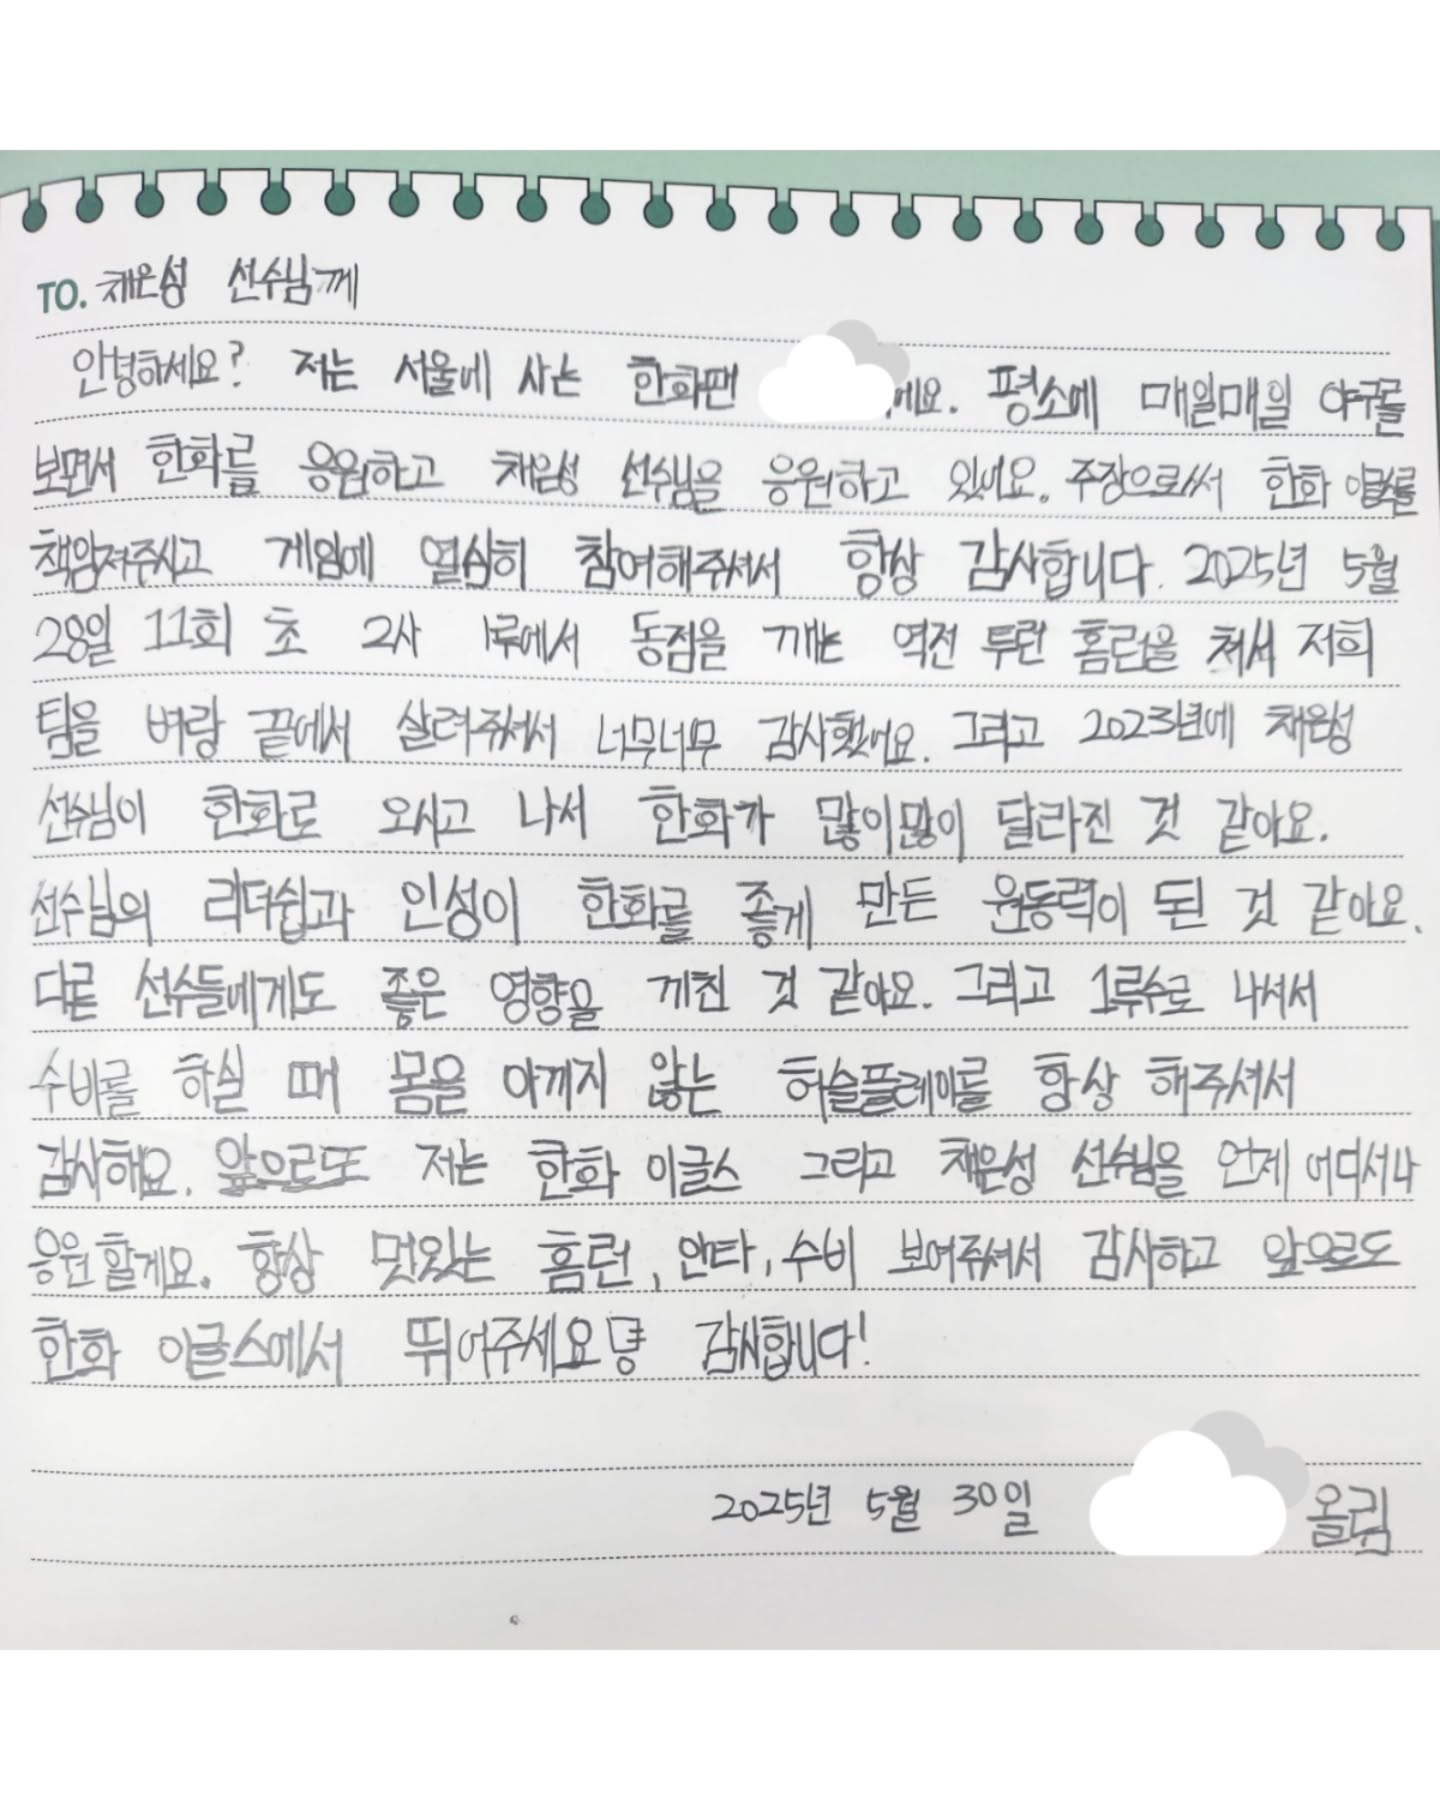 TO. 채은성 선수님께
안녕하세요? 저는 서울에 사는 한화팬 에요. 평소에 매일매일 야구를
보면서 한화를 응원하고 채은성 선수님을 응원하고 있어요. 주장으로써 한화 이글스를
책임져주시고 게임에 열심히 참여해주셔서 항상 감사합니다. 2025년 5월
28일 11회 초 2사 1루에서 동점을 깨는 역전 투런 홈런을 쳐서 저희
팀을 벼랑 끝에서 살려주셔서 너무너무 감사했어요. 그리고 2023년에 채은성
선수님이 한화로 오시고 나서 한화가 많이많이 달라진 것 같아요.
선수님의 리더쉽과 인성이 한화를 좋게 만든 원동력이 된 것 같아요.
다른 선수들에게도 좋은 영향을 끼친 것 같아요. 그리고 1루수로 나셔서
수비를 하실 때 몸을 아끼지 않는 허슬플레이를 항상 해주셔서
감사해요. 앞으로도 저는 한화 이글스 그리고 채은성 선수님을 언제 어디서나
응원할게요. 항상 멋있는 홈런, 안타, 수비 보여주셔서 감사하고 앞으로도
한화 이글스에서 뛰어주세요 감사합니다!
2025년 5월 30일 올림